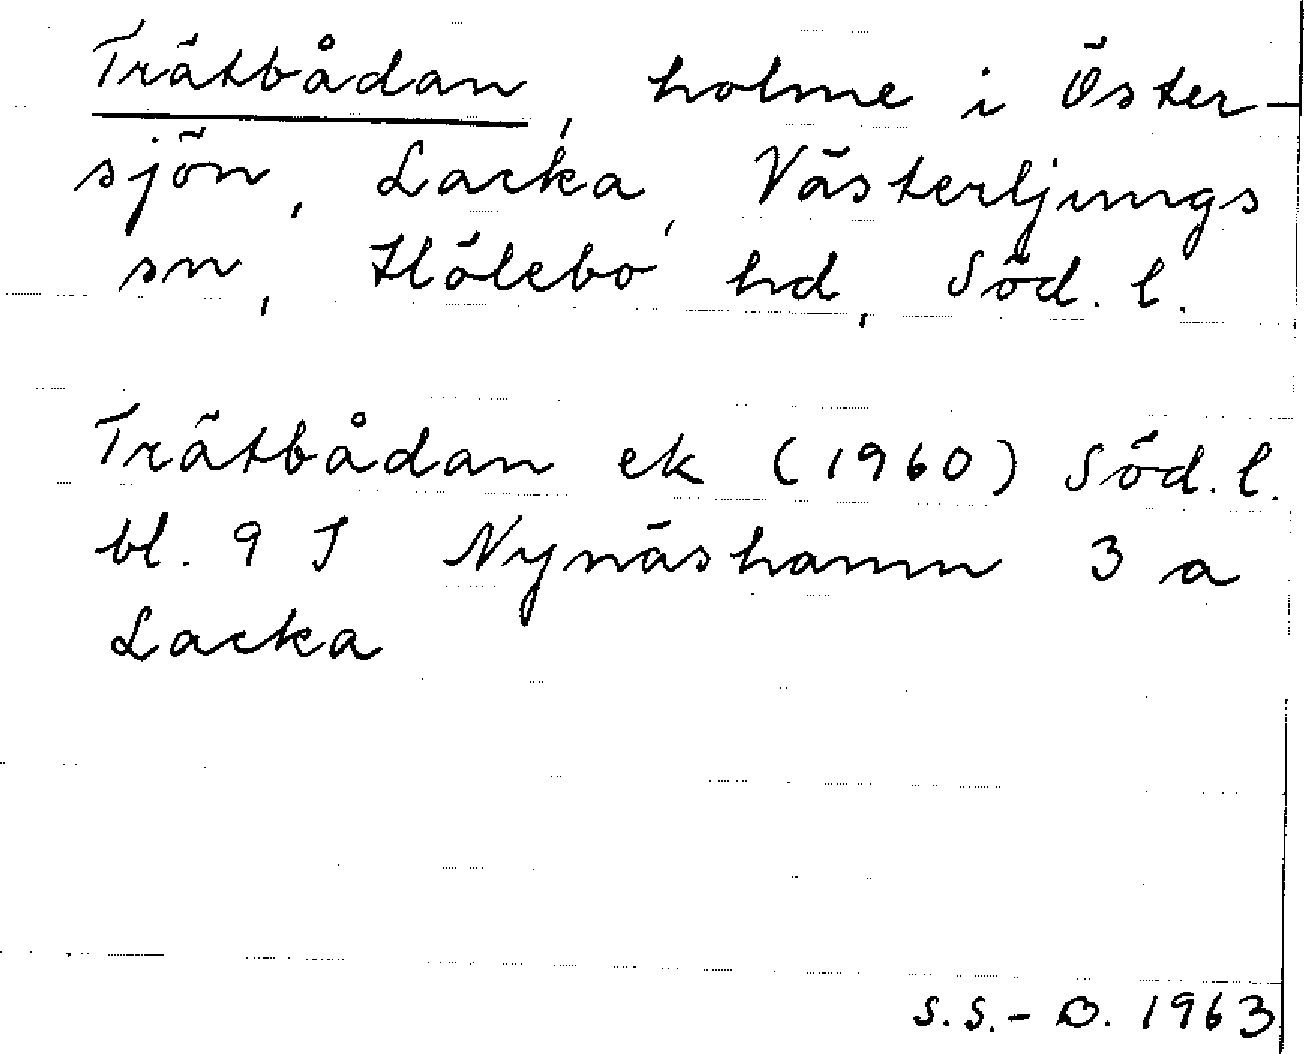 Trätbådan, holme i Öster-
sjön, Lacka, Västerljungs
sn, Hölebo hd, Söd. l.
Trätbådan ek (1960) Söd. l.
bl. 9 I Nynäshamn 3 a
Lacka
S.S.-D. 1963